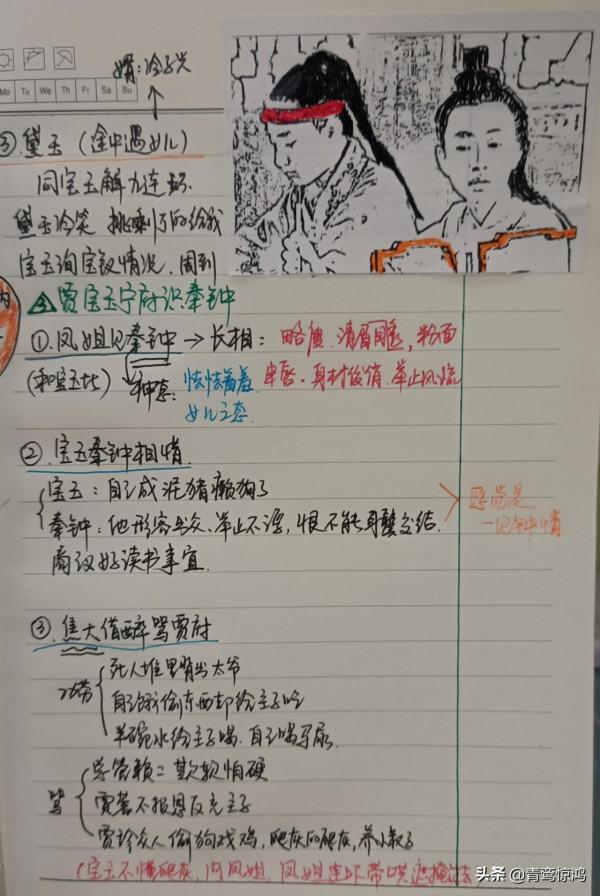 Mo Tu We Th Fr Sa Su
婿:冷子兴
③.黛玉(途中遇女儿)
同宝玉解九连环
黛玉冷笑 挑剩下的给我
宝玉询宝钗情况.周到
贾宝玉宁府识秦钟
①.凤姐见秦钟→长相: 略瘦.清眉目秀,粉面
(和宝玉比) 神态: 怯怯羞羞 朱唇.身材俊俏.举止风流
女儿之态.
②.宝玉秦钟相惜.
宝玉:自己成泥猪癞狗了
秦钟:他形容出众、举止不浮,恨不能耳鬓交结.
感觉是
一见钟情
商议好读书事宜.
③.焦大借醉骂贾府
功劳
死人堆里背出太爷
自己饿偷东西却给主子吃
半碗水给主子喝.自己喝马尿.
骂
总管赖二欺软怕硬
贾蓉不报恩反充主子
贾珍众人偷狗戏鸡,爬灰的爬灰,养小叔子
(宝玉不懂爬灰,问凤姐.凤姐连吓带哄遮掩过去
头条 @青鸾惊鸿